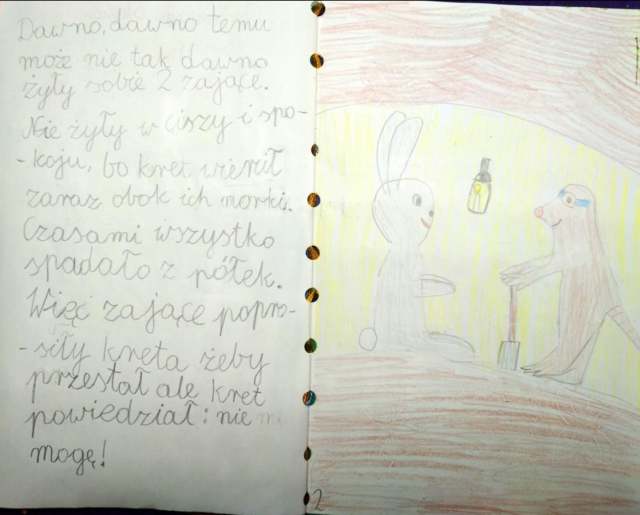 Dawno, dawno temu
może nie tak dawno
żyły sobie 2 zające.
Nie żyły w ciszy i spo-
-koju, bo kret wiercił
zaraz obok ich norki.
Czasami wszystko
spadało z półek.
Więc zające popro-
-siły kreta żeby
przestał ale kret
powiedział: nie
mogę!
2